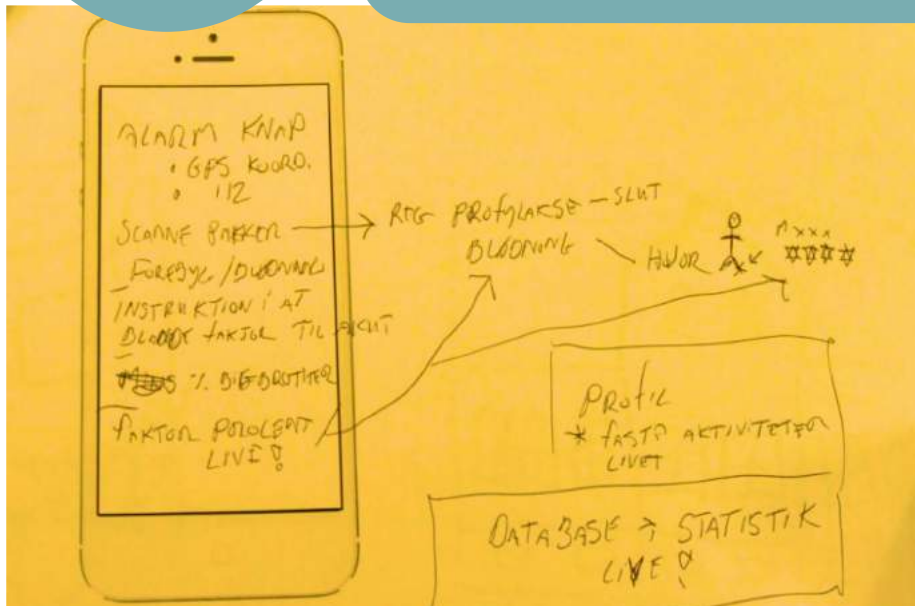 ALARM KNAP
• GPS KOORD.
• 112
SCANNE PAKKER
FOREBYG / BLØDNING
INSTRUKTION I AT
FAKTOR TIL AKUT
% BIGBROTHER
FAKTOR
LIVE!
REG PROFYLAKSE – SLUT
BLØDNING
HVOR
PROFIL
* FASTE AKTIVITETER
LIVET
DATABASE → STATISTIK
LIVE!